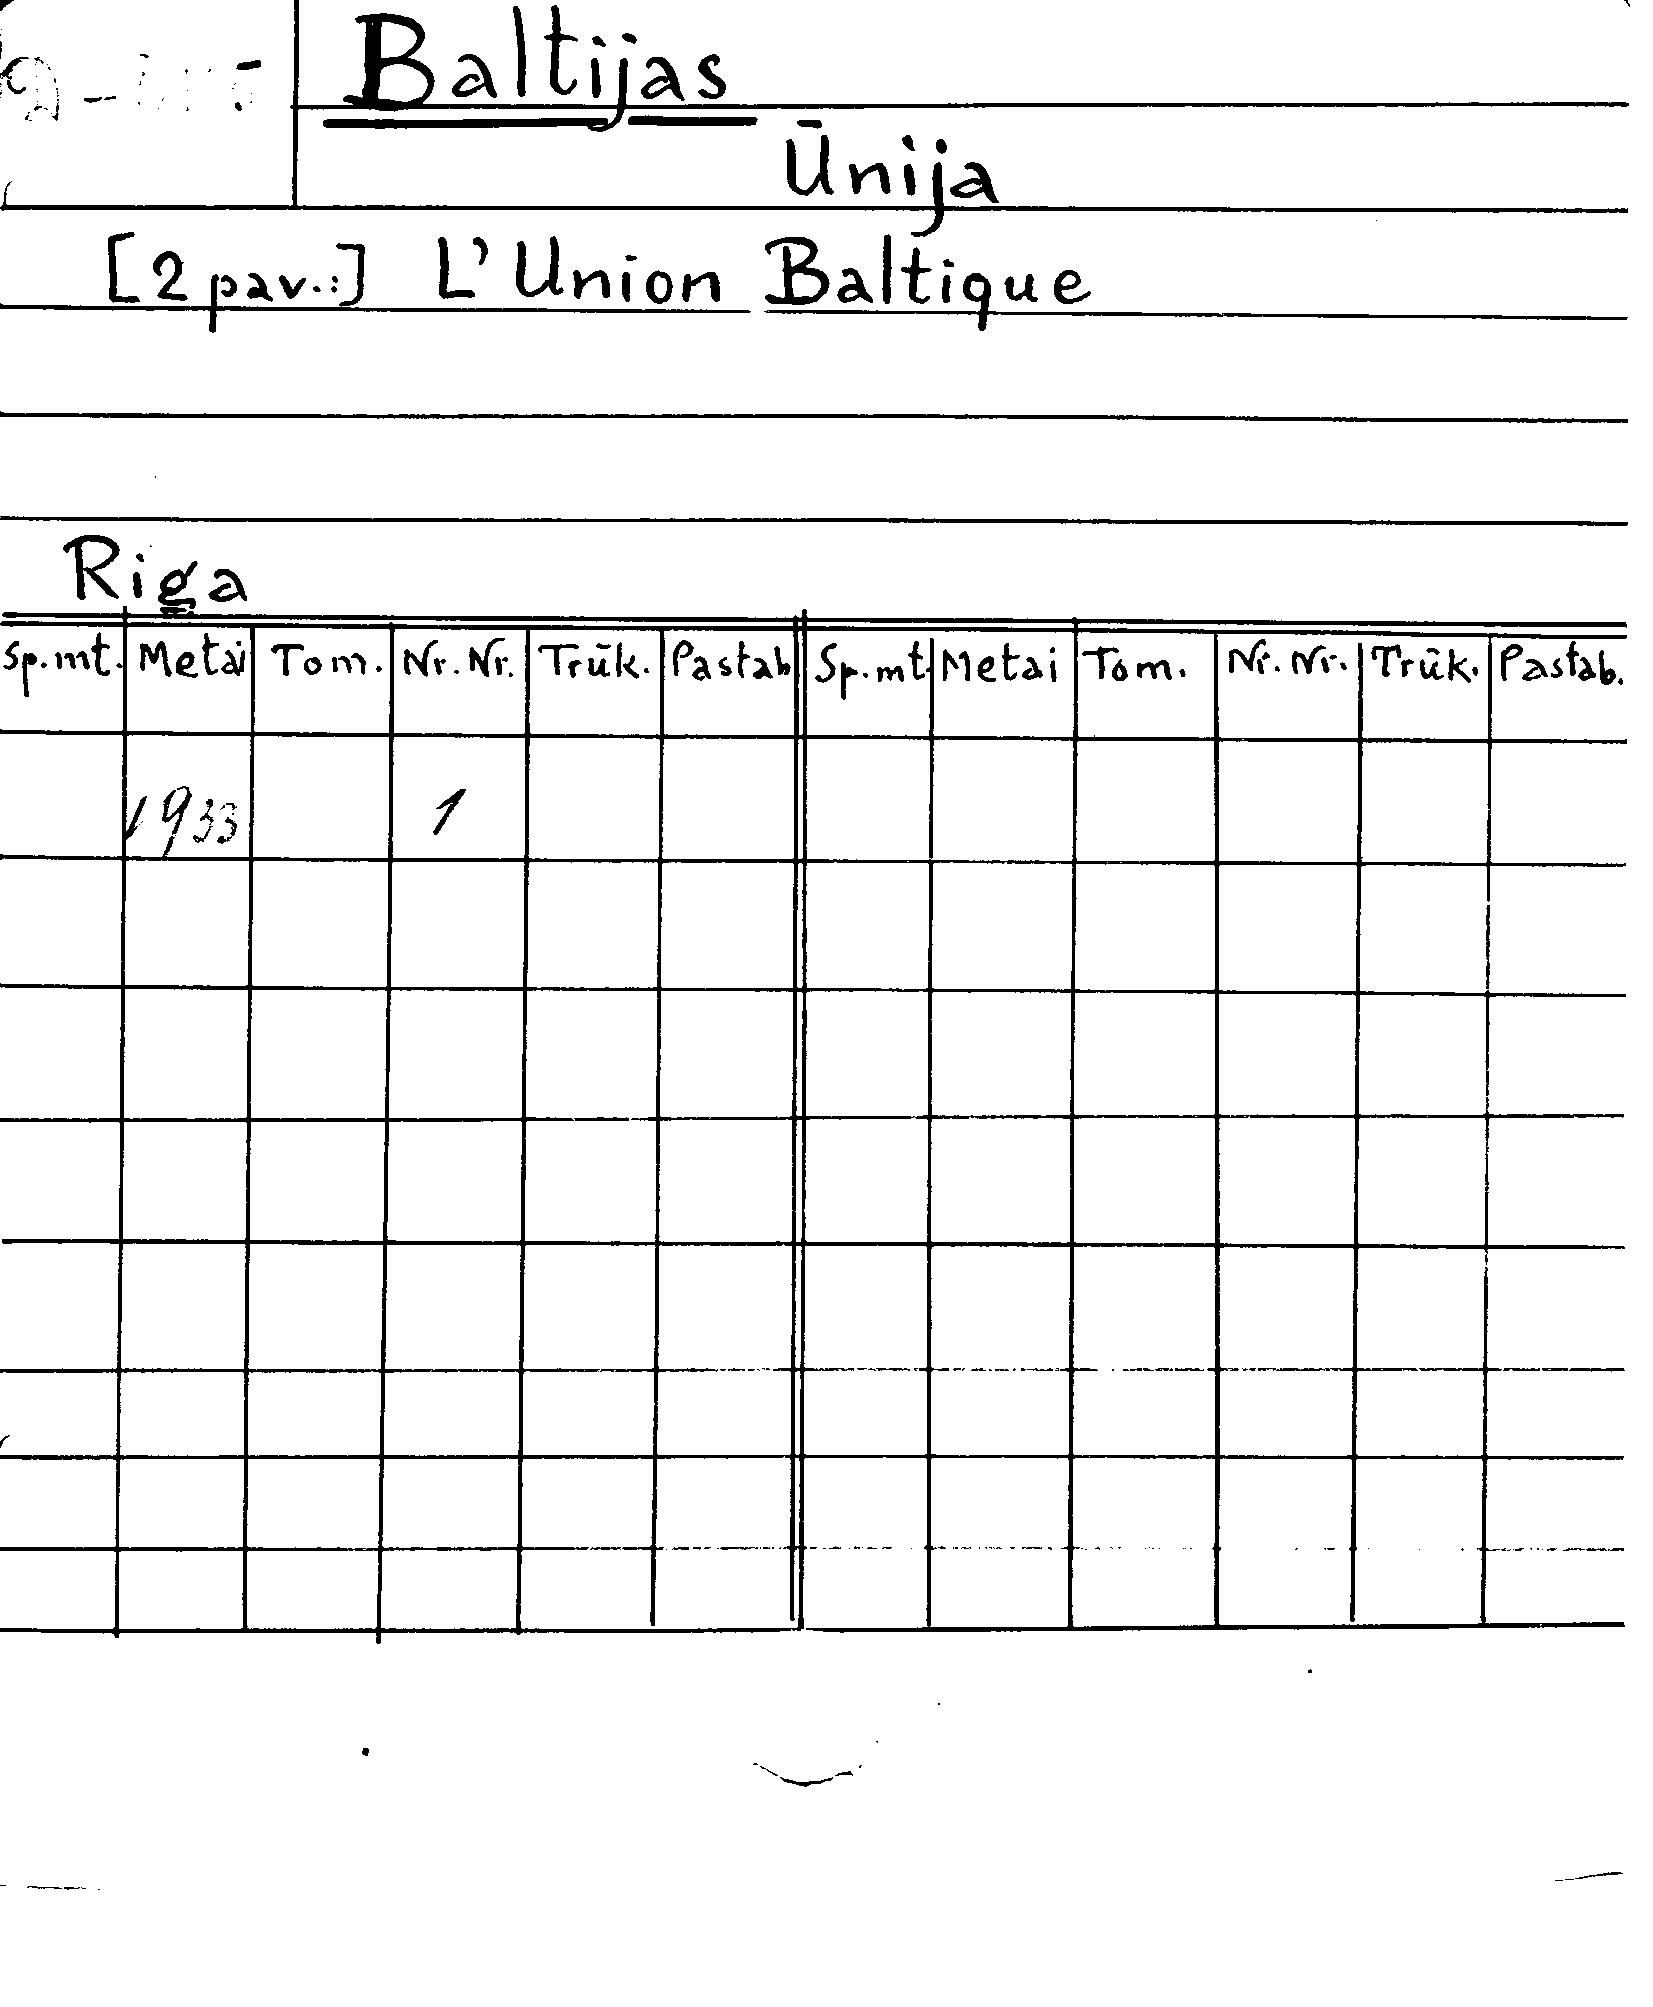 Baltijas
Ūnija
[2 pav.:] L'Union Baltique
Riga
Sp.mt. Metai Tom. Nr. Nr. Trūk. Pastab. Sp.mt. Metai Tom. Nr. Nr. Trūk. Pastab.
1933 1